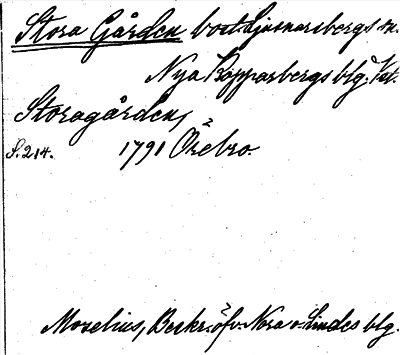 Stora Gården bost. Ljusnarsbergs sn.
Nya Kopparbergs blg. Vstl.
Storagården,
S. 214. 1791 Örebro.
Moselius, Beskr. öfv. Nora o. Lindes blg.